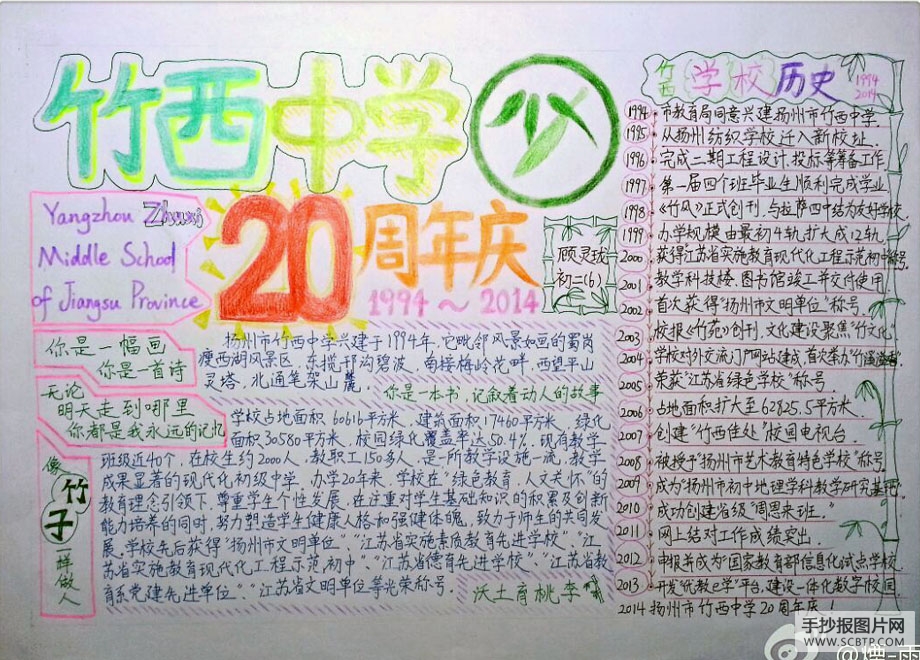 竹西中学
Yangzhou Zhuxi
Middle School
of Jiangsu Province
20周年庆
1994～2014
顾灵珑
初二(6)
你是一幅画
你是一首诗
无论
明天走到哪里
你都是我永远的记忆
像
竹子
一样做人
扬州市竹西中学兴建于1994年,它毗邻风景如画的蜀岗
瘦西湖风景区,东揽邗沟碧波,南接梅岭花畔,西望平山
灵塔,北通笔架山麓.
你是一本书,记叙着动人的故事
学校占地面积60616平方米,建筑面积17460平方米,绿化
面积30580平方米,校园绿化覆盖率达50.4%,现有教学
班级近40个,在校生约2000人,教职工150多人,是一所教学设施一流,教学
成果显著的现代化初级中学.办学20年来,学校在“绿色教育,人文关怀”的
教育理念引领下,尊重学生个性发展,在注重对学生基础知识的积累及创新
能力培养的同时,努力塑造学生健康人格和强健体魄,致力于师生的共同发
展.学校先后获得“扬州市文明单位”“江苏省实施素质教育先进学校”、“江
苏省实施教育现代化工程示范初中”、“江苏省德育先进学校”、“江苏省教
育系党建先进单位”“江苏省文明单位等光荣称号.
沃土育桃李
竹西学校历史
1994
2014
1994 市教育局同意兴建扬州市竹西中学
1995 从扬州纺织学校迁入新校址.
1996 完成二期工程设计,投标等筹备工作
1997 第一届四个班毕业生顺利完成学业
1998 《竹风》正式创刊,与拉萨四中结为友好学校
1999 办学规模由最初4轨扩大成12轨
2000 获得“江苏省实施教育现代化工程示范初中”称号.
2001 教学科技楼.图书馆竣工并交付使用
2002 首次获得“扬州市文明单位”称号.
2003 校报《竹苑》创刊,文化建设聚焦“竹文化”
2004 学校对外交流门户网站建成,首次举办
2005 荣获“江苏省绿色学校”称号
2006 占地面积扩大至62825.5平方米.
2007 创建“竹西佳处”校园电视台.
2008 被授予“扬州市艺术教育特色学校”称号
2009 成为“扬州市初中地理学科教学研究基地”
2010 成功创建省级“周恩来班.”
2011 网上结对工作成绩突出.
2012 申报并成为“国家教育部信息化试点学校.
2013 开发“优教e学”平台,建设一体化数字校园
2014 扬州市竹西中学20周年庆!
手抄报图片网
WWW.SCBTP.COM